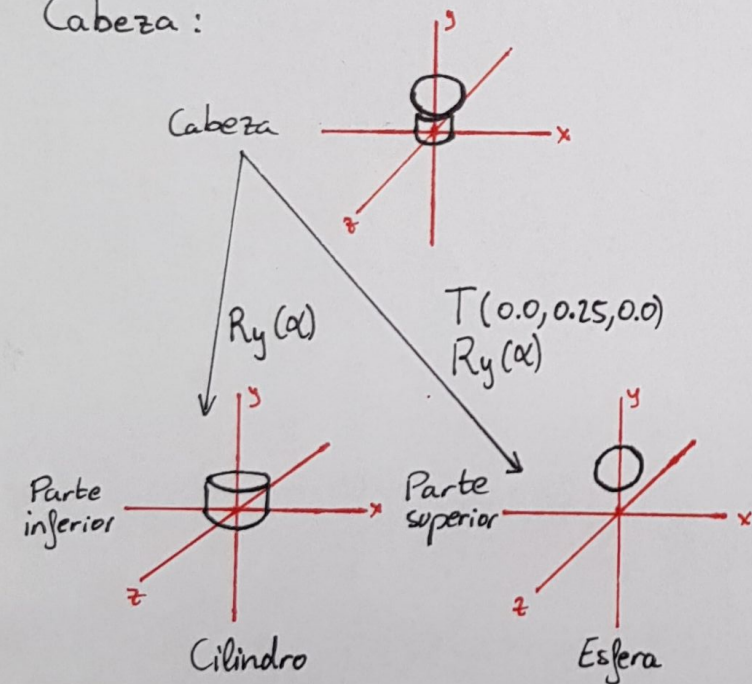 Cabeza:
y
Cabeza
x
z
Ry(α)
T(0.0,0.25,0.0)
Ry(α)
y
Parte
inferior
x
z
Cilindro
y
Parte
superior
x
z
Esfera